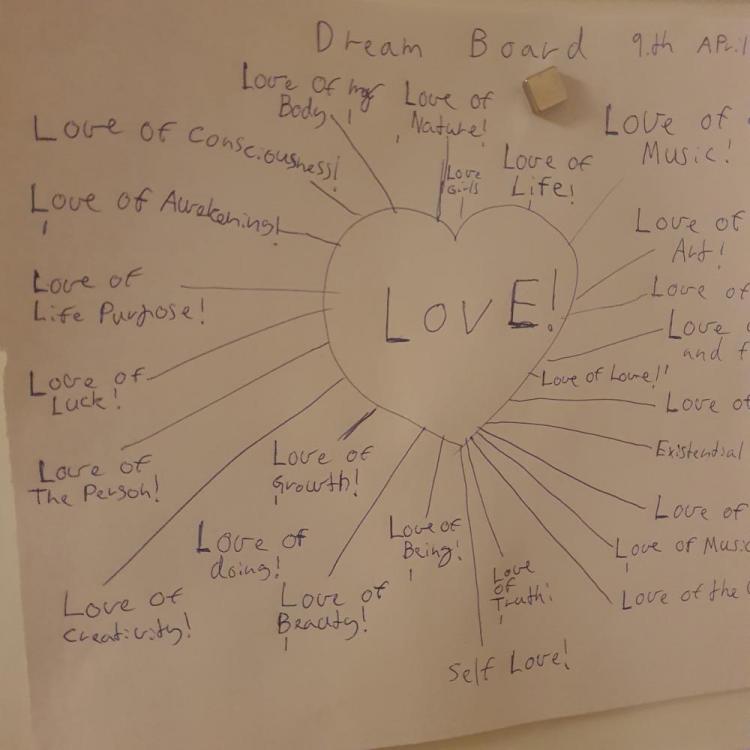 Dream Board 9.th APr.1
Love of my
Body!
Love of
Nature!
Love of
Music!
Love of Consciousness!
Love
Girls
Love of
Life!
Love of Awakening!
Love of
Art!
Love of
Life Purpose!
LOVE!
Love of
Love
and
Love of Love!'
Love of
Luck!
Love of
Existential
Love of
The Person!
Love of
Growth!
Love of
Love of Music
Love of the
Love of
doing!
Love of
Being!
Love
of
Truth!
Love of
Creativity!
Love of
Beauty!
Self Love!